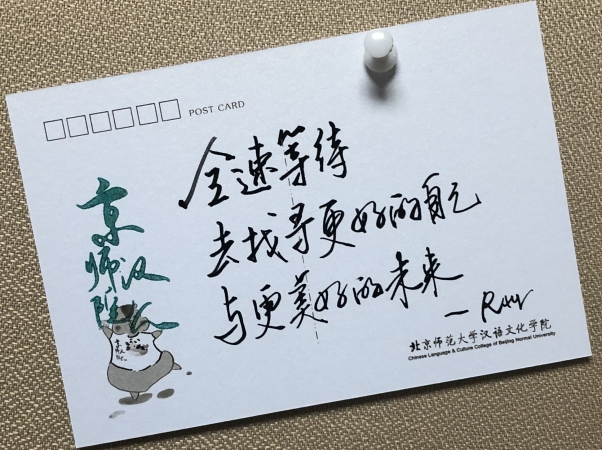 POST CARD
全速等待
去找寻更好的自己
与更美好的未来
京师汉院人
北京师范大学汉语文化学院
Chinese Language & Culture College of Beijing Normal University